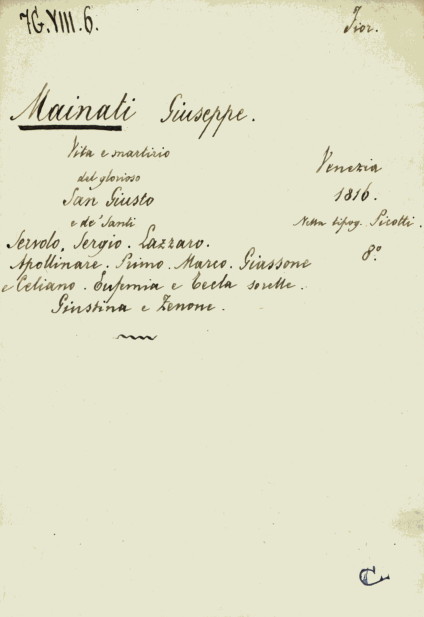 7G.VIII.6.
Fior.
Mainati Giuseppe.
Vita e martirio
del glorioso
San Giusto
e de' Santi
Servolo. Sergio. Lazzaro.
Apollinare. Primo. Marco. Giassone
e Celiano. Eufemia e Tecla sorelle.
Giustina e Zenone.
Venezia
1816.
Nella tipog. Picotti.
8º
C